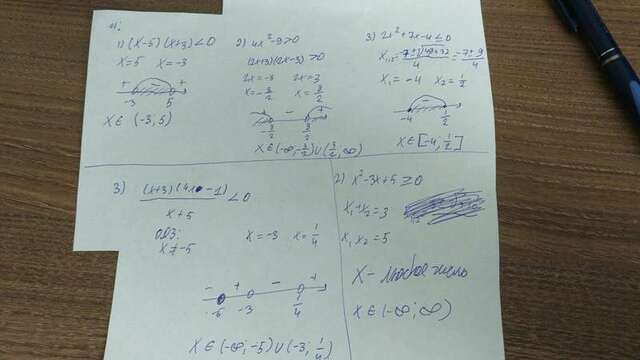 1) (x-5)(x+3)<0
x=5 x=-3
+ - +
-3 5
x∈ (-3;5)
2) 4x²-9>0
(2x+3)(2x-3)>0
2x=-3 2x=3
x=-3/2 x=3/2
+ - +
-3/2 3/2
x∈(-∞;-3/2)∪(3/2;∞)
3) 2x²+7x-4≤0
x₁,₂=-7±√49+32/4=-7±9/4
x₁=-4 x₂=1/2
-
-4 1/2
x∈[-4;1/2]
3) (x+3)(4x-1)/x+5<0
ОДЗ:
x≠-5
x=-3 x=1/4
- + - +
-5 -3 1/4
x∈(-∞;-5)∪(-3;1/4)
2) x²-3x+5≥0
x₁+x₂=3
x₁x₂=5
x- любое число
x∈(-∞;∞)